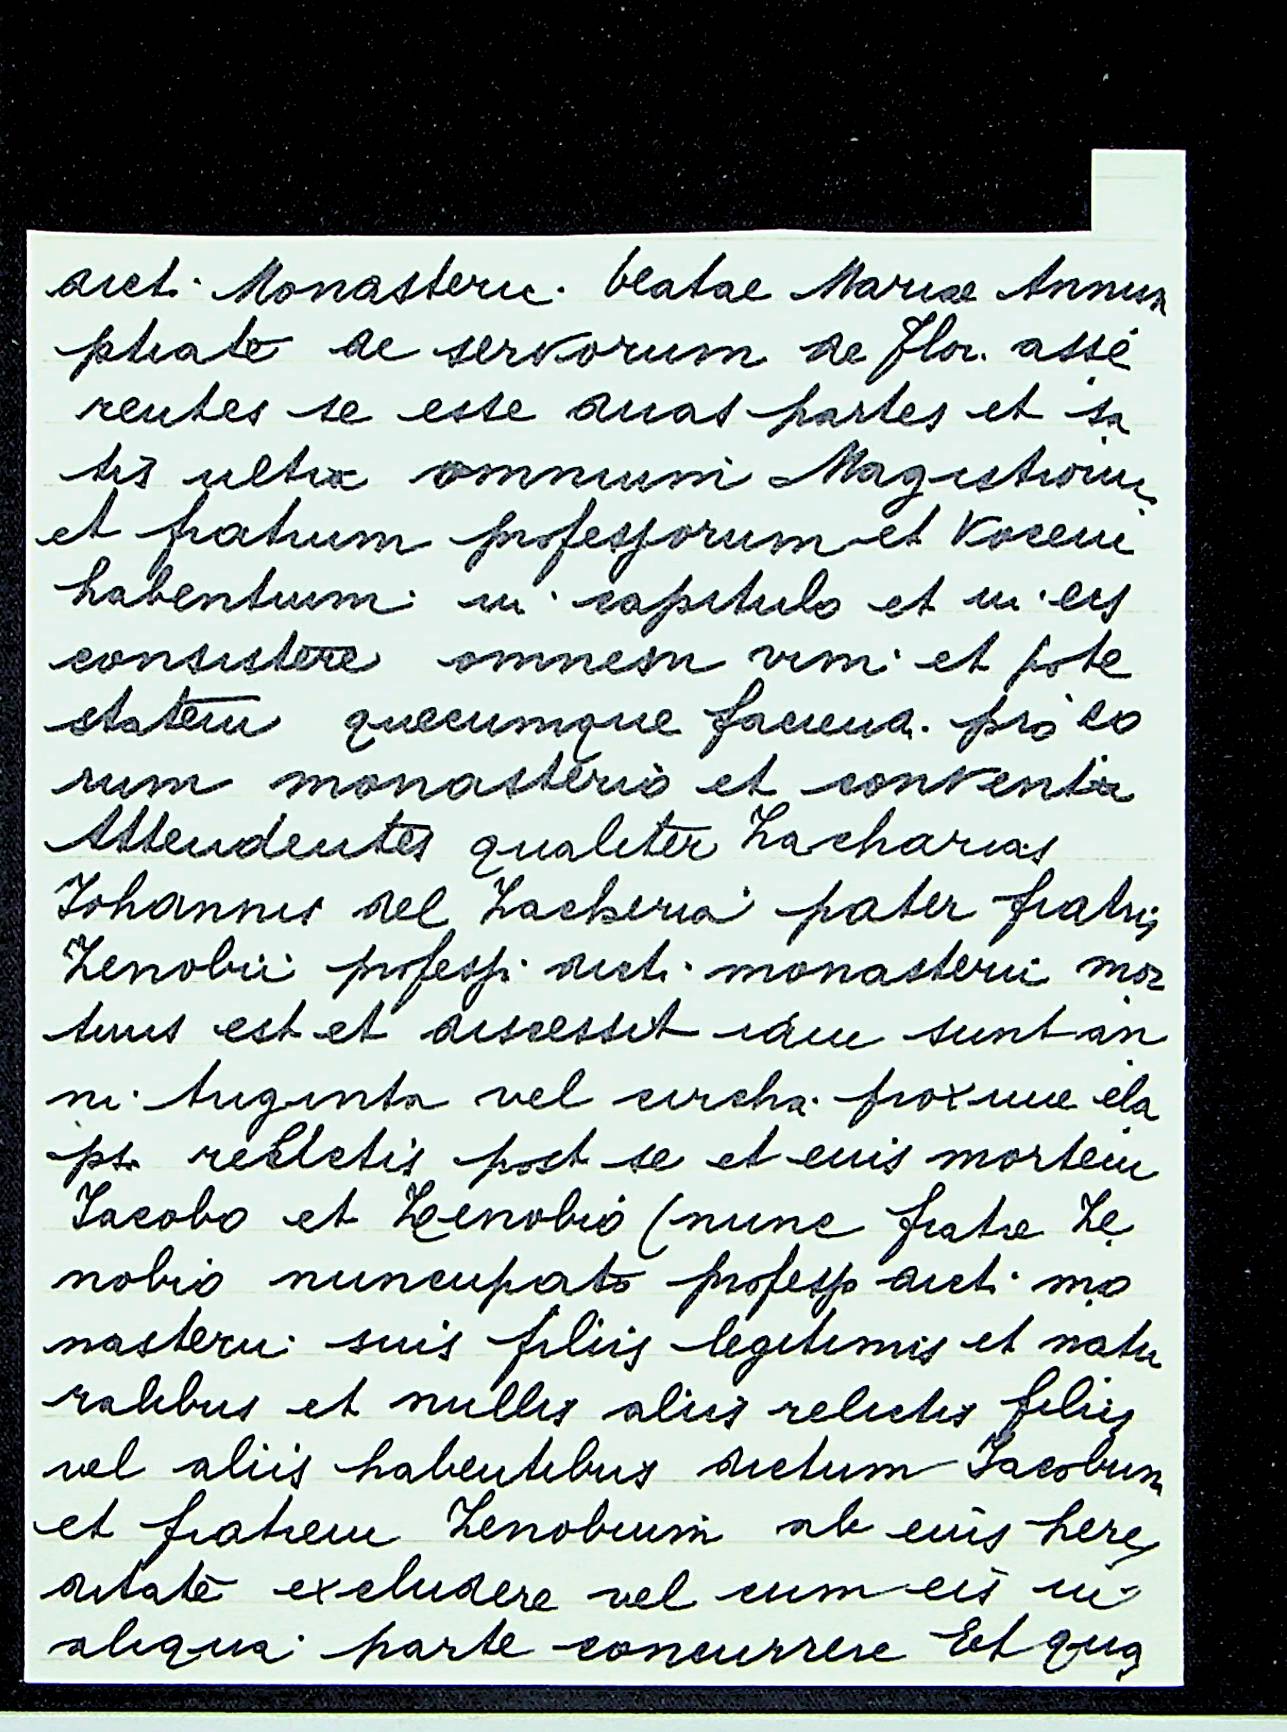 dicti Monasterii beatae Mariae Annun
ptiate de servorum de Flor. asse
rentes se esse duas partes et sa
tis ultra omnium Magistrorum
et fratrum professorum et vocem
habentium in capitulo et in eis
consistere omnem vim et pote
statem quecumque faciend. pro eo
rum monasterio et conventu
Attendentes qualiter Zacharias
Johannis del Zacheria pater fratris
Zenobii profess. dicti monasterii mor
tuus est et discessit iam sunt an
ni triginta vel circha proxime ela
psi relictis post se et eius mortem
Jacobo et Zenobio (nunc fratre Ze
nobio nuncupato professo dicti mo
nasterii suis filiis legitimis et natu
ralibus et nullis aliis relictis filiis
vel aliis habentibus dictum Jacobum
et fratrem Zenobium ab eius here
ditate excludere vel cum eis in
aliqua parte concurrere Et qua